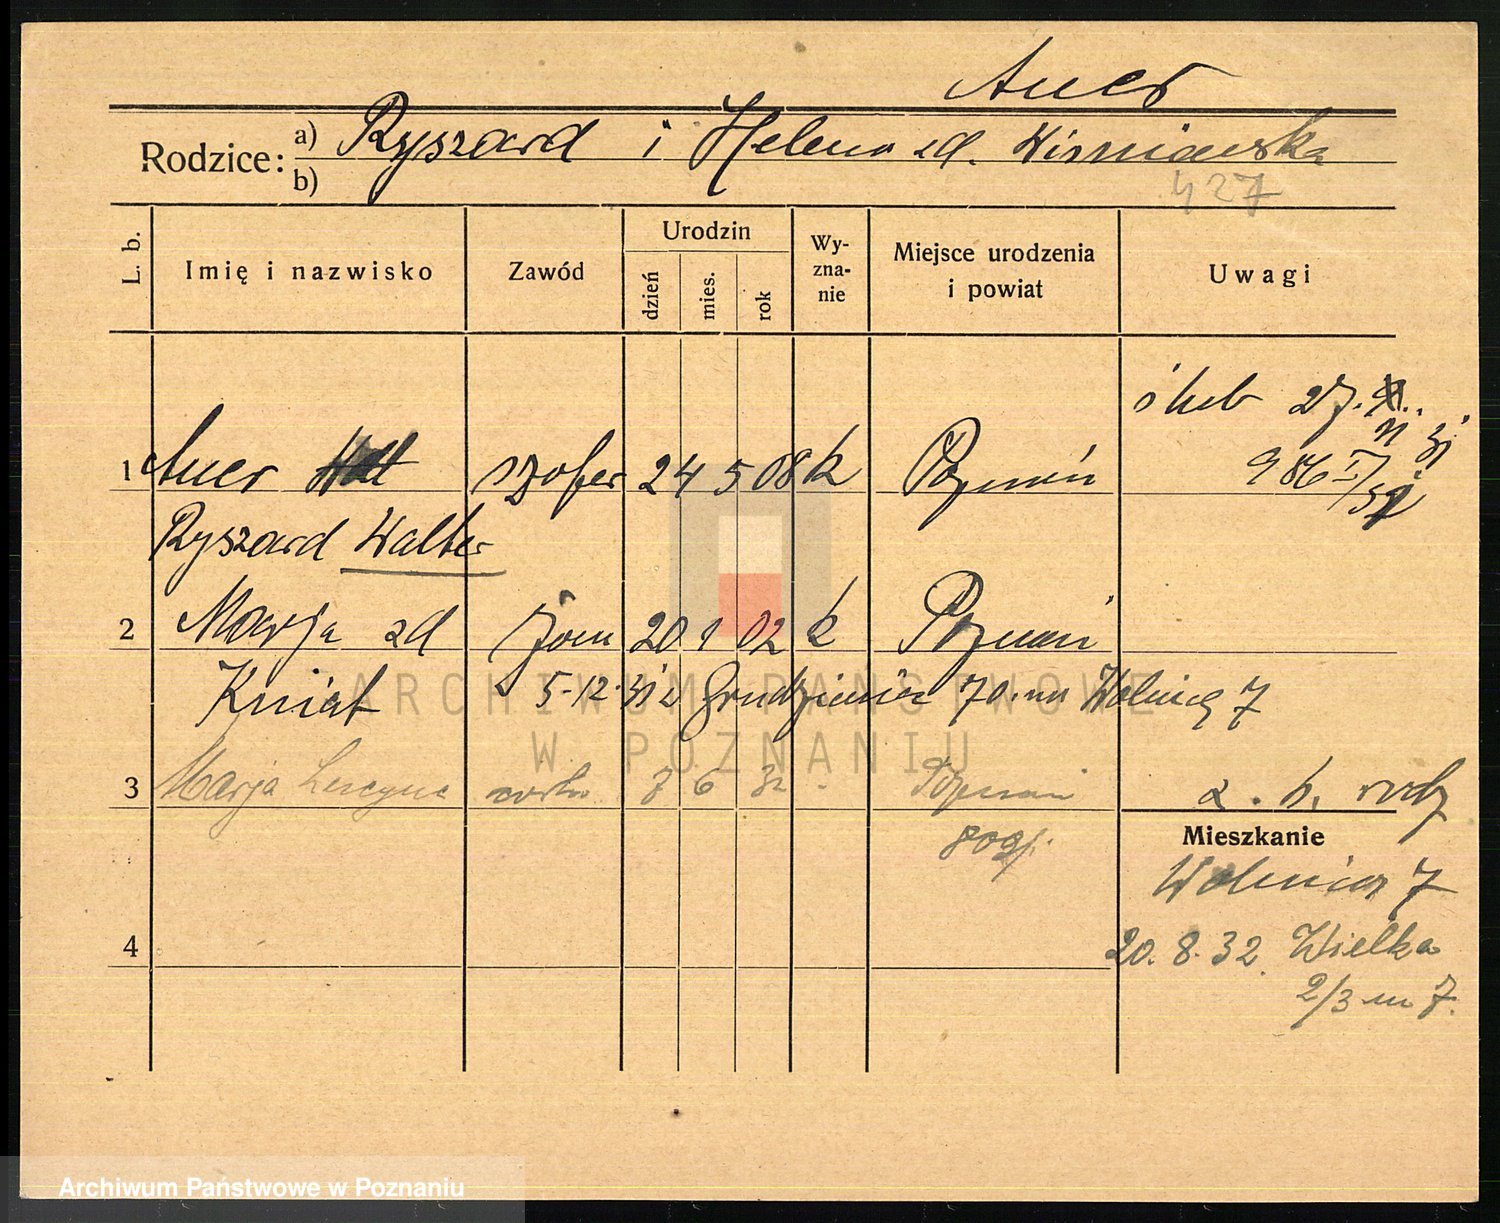 Auer
Rodzice: a) Ryszard i Helena zd. Wiśniewska
b)
427
L. b.
Imię i nazwisko
Zawód
Urodzin
dzień
mies.
rok
Wy-
zna-
nie
Miejsce urodzenia
i powiat
Uwagi
ślub 27.
31
1 Auer szofer 24 5 08 k Poznań 986
Ryszard Walter
2 Marja zd żona 20 1 02 k Poznań
Kniat 5-12.31 z Grudzieniec 70. na Wolnicę 7
3 Marja córka 7 6 32 Poznań
ARCHIWUM PAŃSTWOWE
W POZNANIU
Mieszkanie
Wolnica 7
4
20.8.32. Wielka
2/3 m 7.
Archiwum Państwowe w Poznaniu